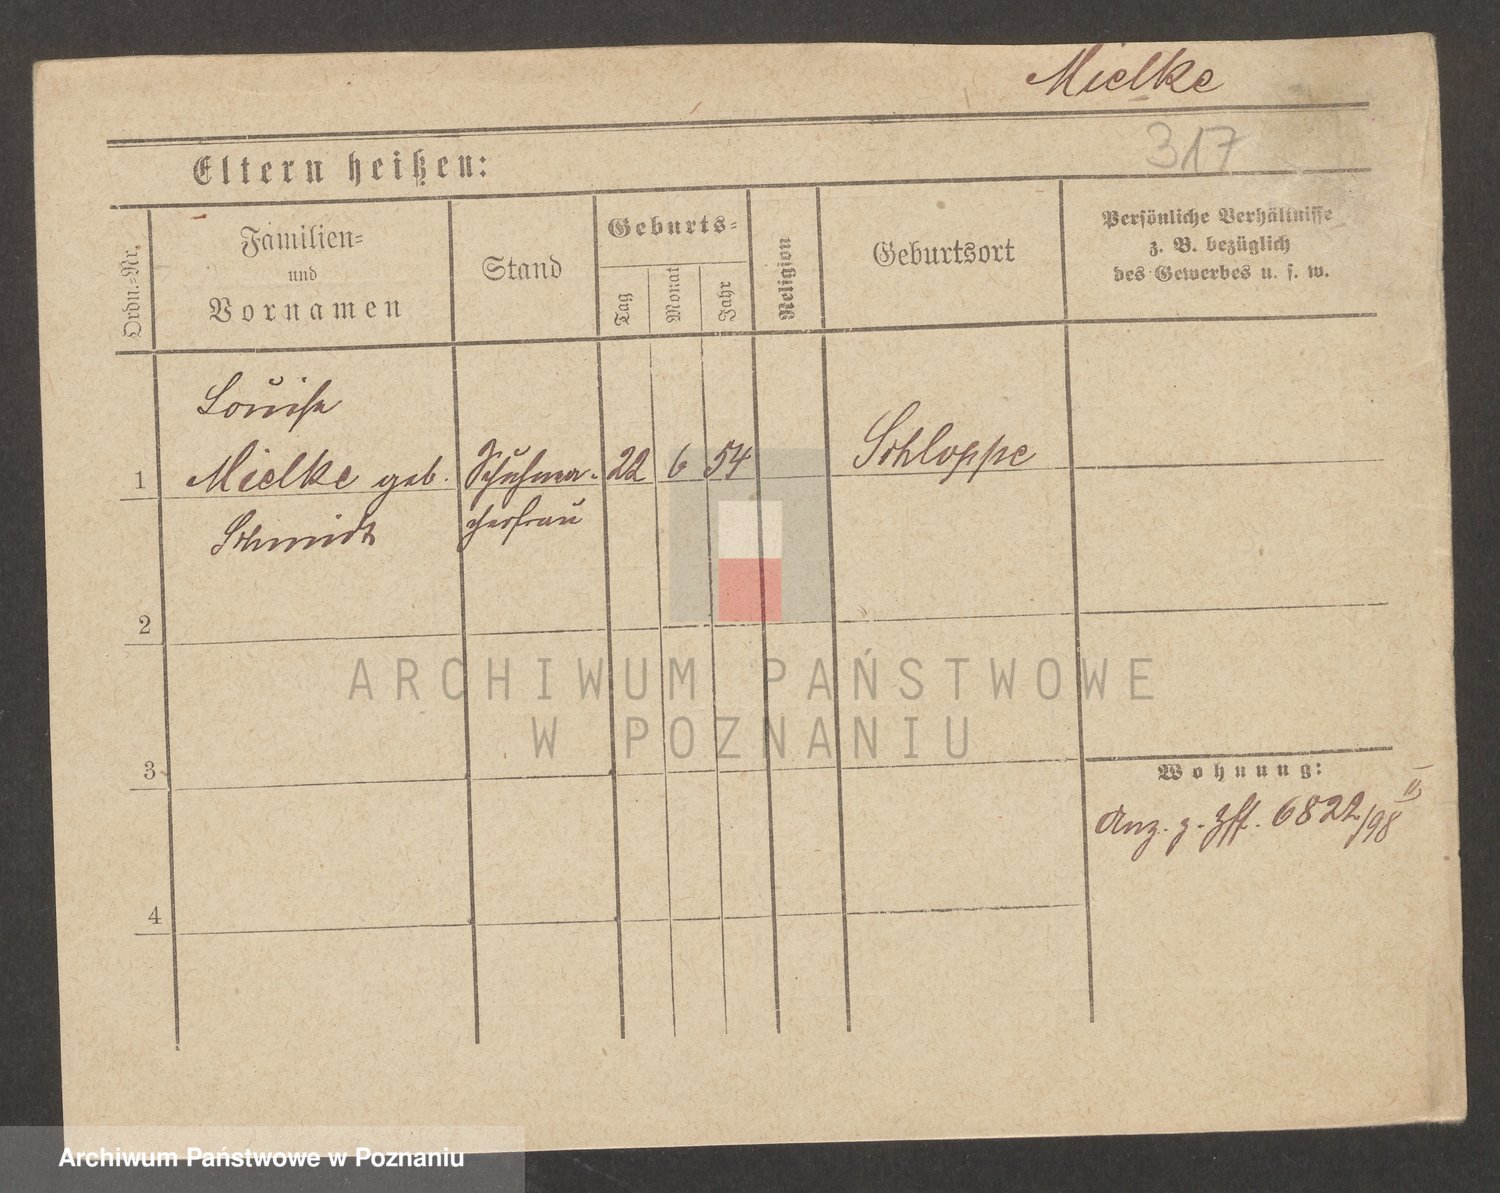 Mielke
317
Eltern heißen:
Ordn.-Nr.
Familien-
und
Vornamen
Stand
Geburts-
Tag
Monat
Jahr
Religion
Geburtsort
Persönliche Verhältnisse
z. B. bezüglich
des Gewerbes u. s. w.
Louise
1 Mielke geb. Schuhma- 22 6 54 Schloppe
Schmidt cherfrau
2
ARCHIWUM PAŃSTWOWE
W POZNANIU
3
Wohnung:
Anz. z. 6822/98 II
4
Archiwum Państwowe w Poznaniu